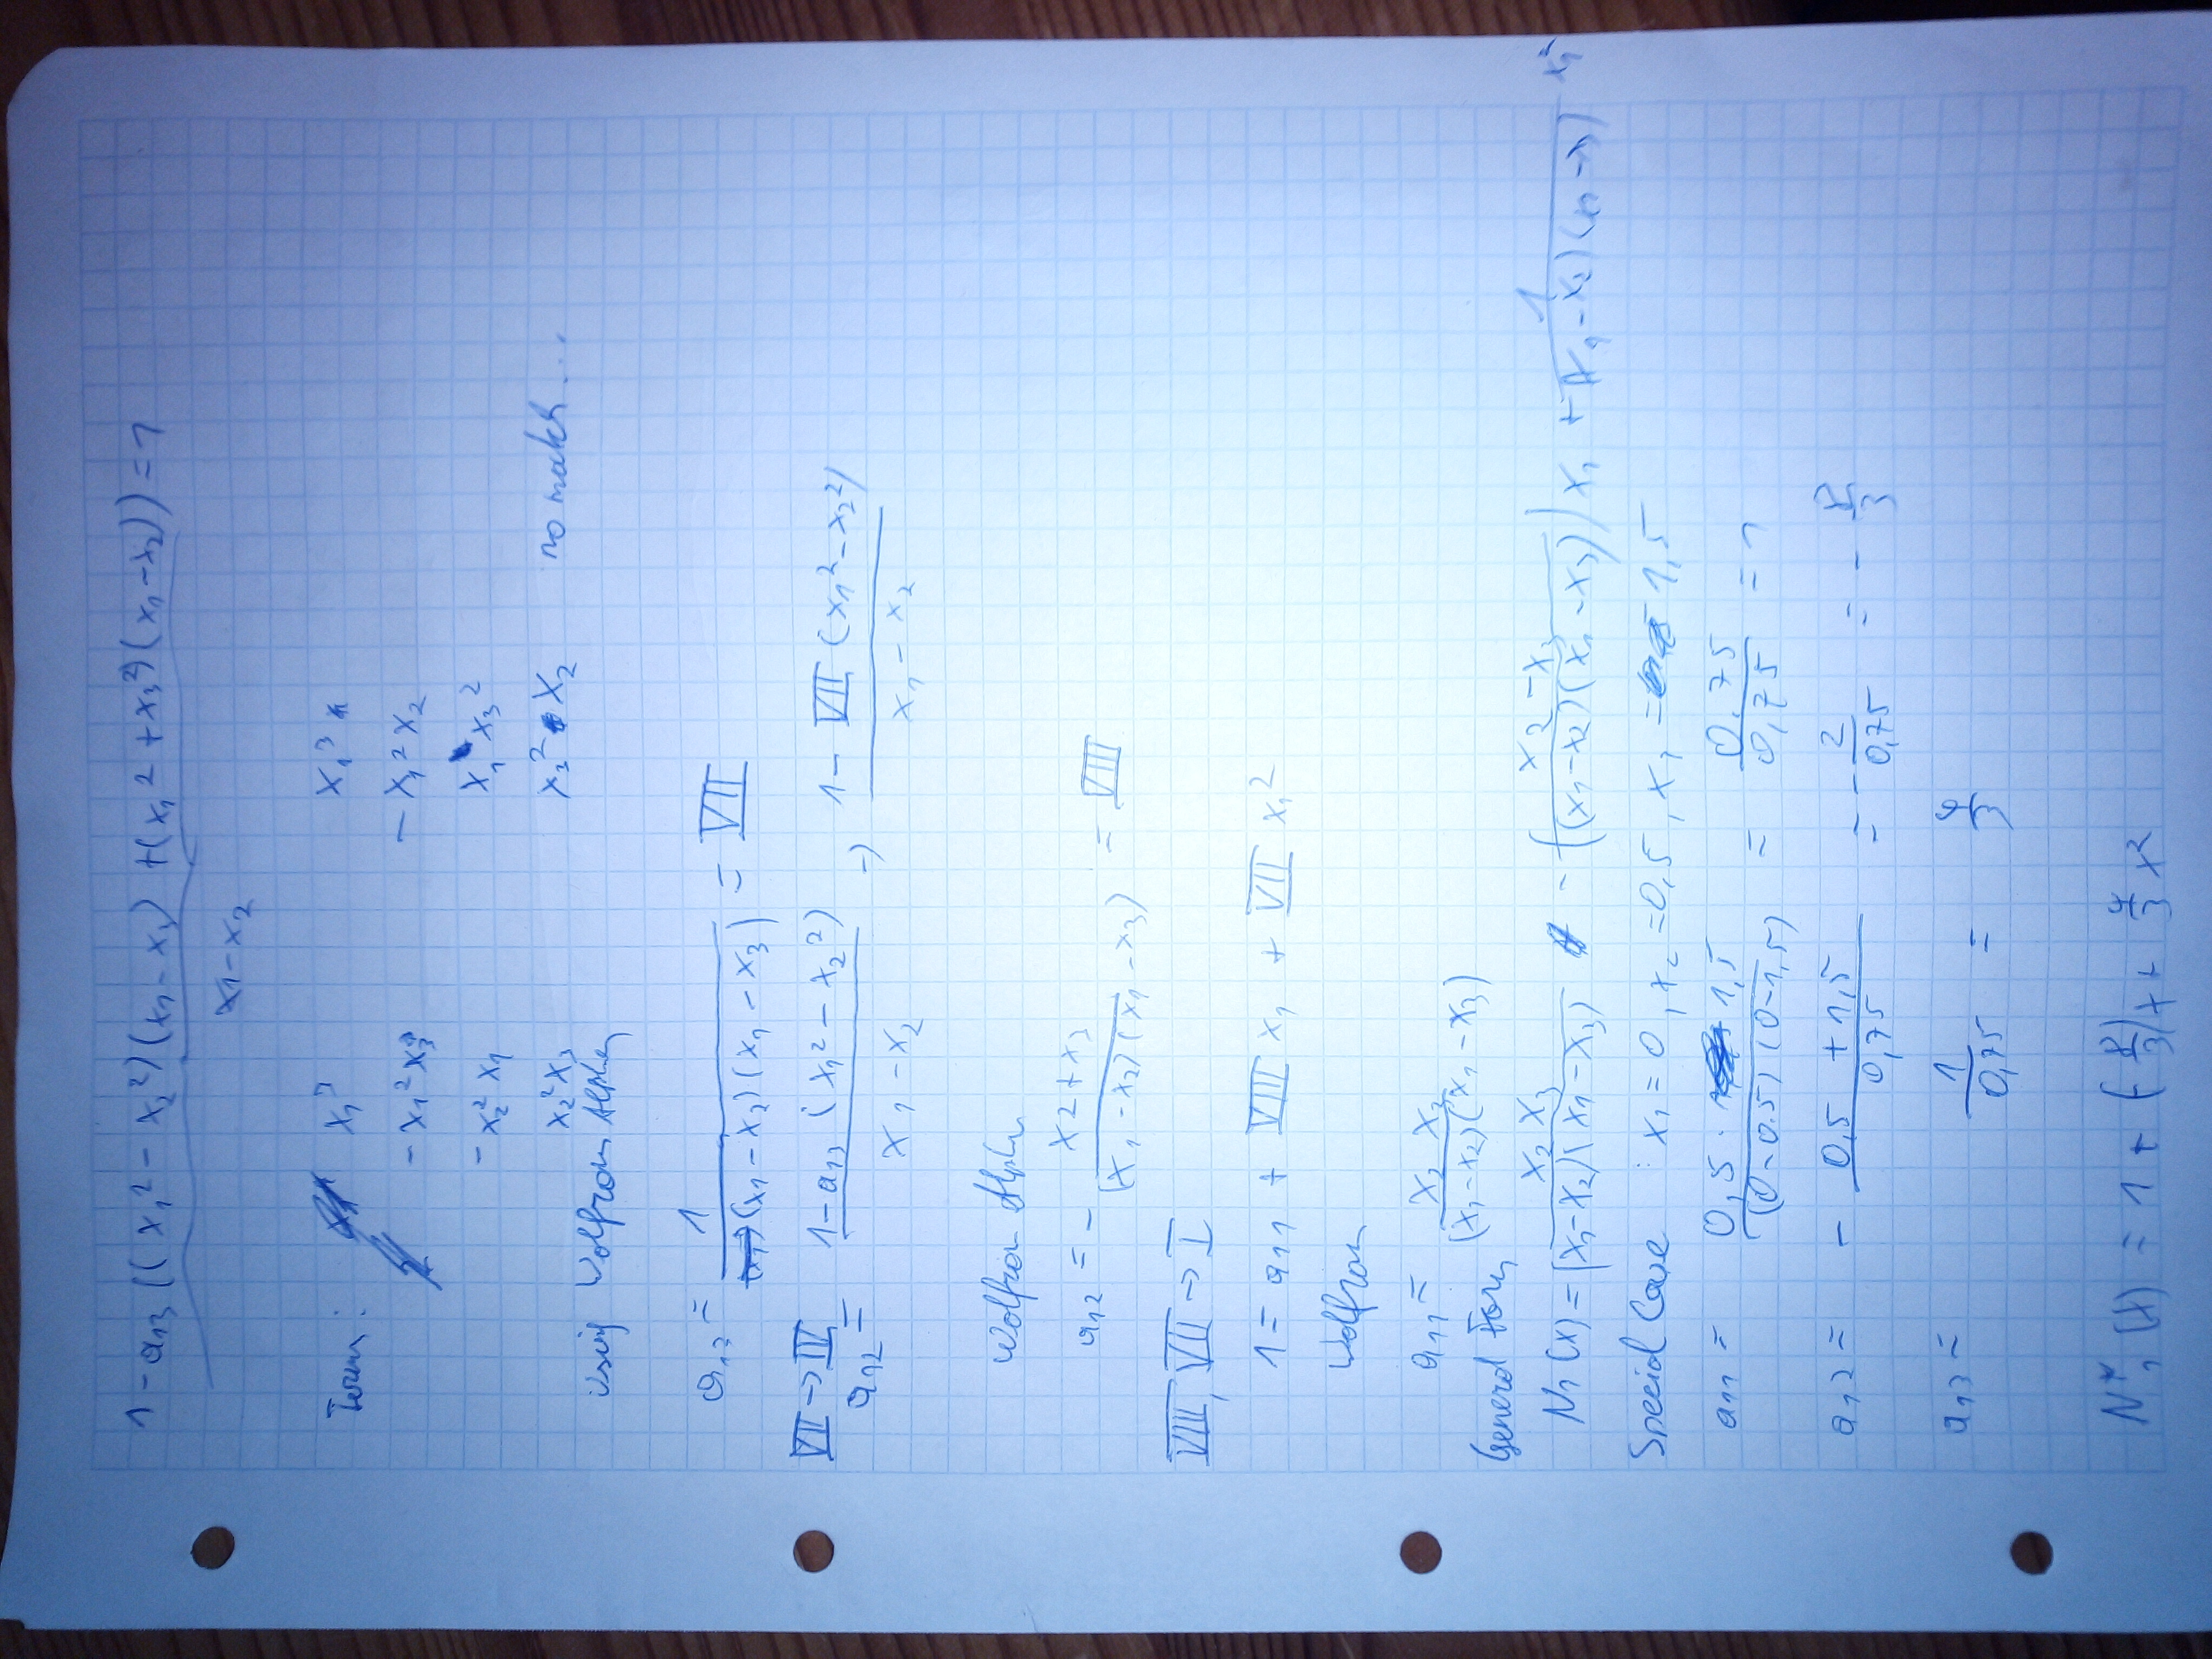 1 - a₁₃ ((x₁² - x₂²)(x₁ - x₃) + (x₁² + x₃²)(x₁ - x₂)) = 1
x₁ - x₂
Term: x₁³ x₁³
- x₁² x₃ - x₁² x₂
- x₂² x₁ x₁ x₃²
x₂² x₃ x₃² x₂ no match...
using Wolfram Alpha
a₁₃ = 1 / ((x₁ - x₂)(x₁ - x₃)) = VII
VII → IV
a₁₂ = (1 - a₁₃ (x₁² - x₂²)) / (x₁ - x₂) → (1 - VII (x₁² - x₂²)) / (x₁ - x₂)
Wolfram Alpha
a₁₂ = - (x₂ + x₃) / ((x₁ - x₂)(x₁ - x₃)) = VIII
VIII, VII → I
1 = a₁₁ + VIII x₁ + VII x₁²
Wolfram
a₁₁ = x₂ x₃ / ((x₁ - x₂)(x₁ - x₃))
General Form
N₁(x) = x₂ x₃ / ((x₁ - x₂)(x₁ - x₃)) - ((x₂ - x₃) / ((x₁ - x₂)(x₁ - x₃))) x₁ + 1 / ((x₁ - x₂)(x₁ - x₃)) x₁²
Special Case : x₁ = 0, x₂ = 0,5, x₃ = 1,5
a₁₁ = 0,5 · 1,5 / ((0 - 0.5)(0 - 1,5)) = 0.75 / 0,75 = 1
a₁₂ = - (0,5 + 1,5) / 0,75 = - 2 / 0,75 = - 8/3
a₁₃ = 1 / 0,75 = 4/3
N₁*(x) = 1 + (-8/3)x + 4/3 x²